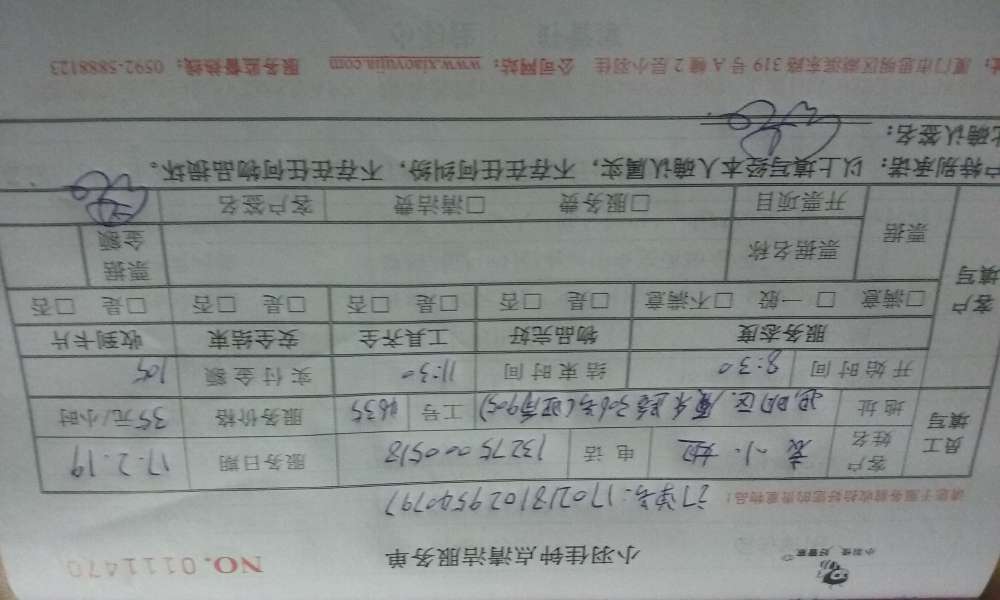 小羽佳 好管家
小羽佳钟点清洁服务单
NO.0111470
请您于服务前收拾好您的贵重物品!
订单号:1702181029540797
员工填写
客户姓名 袁小姐 电话 13275000518 服务日期 17.2.19
地址 思明区 工号 4635 服务价格 35元/小时
开始时间 8:30 结束时间 11:30 实付金额 105
客户填写
服务态度 物品完好 工具齐全 安全结束 收到卡片
□满意 □一般 □不满意 □是 □否 □是 □否 □是 □否 □是 □否
票据 票据名称 票据金额
开票项目 □服务费 □清洁费 客户签名
户特别承诺:以上填写经本人确认属实,不存在任何纠纷,不存在任何物品损坏。
此确认签名:
址:厦门市思明区湖滨东路319号A幢2层小羽佳 公司网站:www.xiaoyujia.com 服务监督热线:0592-5888123